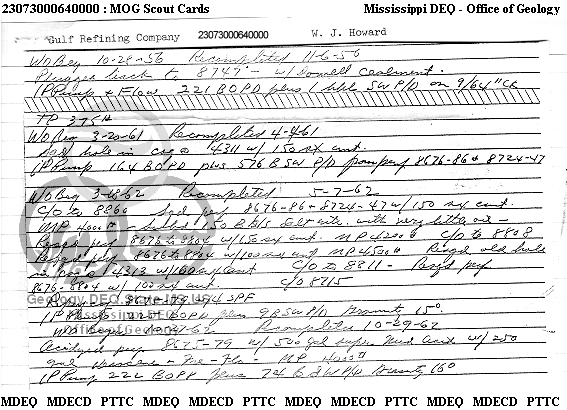 23073000640000 : MOG Scout Cards Mississippi DEQ - Office of Geology
Gulf Refining Company W. J. Howard
WO Beg 10-28-56 Recompleted 11-6-56
Plugged back to 8747' - w/Dowell
IP Pump & Flow 221 BOPD plus 1 bbl SW P/D on 9/64" CK
TP 375#
WO Beg 3-20-61 Recompleted 4-4-61
Sqd hole in csg @ 4311 w/150 sx cmt.
IP Pump 164 BOPD plus 576 BSW P/D from perf 8676-86 & 8724-47
WO Beg 3-18-62 Recompleted 5-7-62
C/O to 8860 Sqd perf 8676-86 & 8724-47 w/150 sx cmt.
MP 4000# - 150 Bbls salt wtr. with very little oil -
perf 8676 to 8804 w/150 sx cmt. MP 4200# C/O to 8808
perf 8676 to 8804 w/100 sx cmt MP 4500# old hole
in csg @ 4313 w/100 sx cmt C/O to 8811 - perf
8676-8804 w/100 sx cmt C/O 8715
4 SPF
Geology.DEQ.State.MS.US
IP Pump BOPD plus 98 SW P/D Gravity 15°
Mississippi DEQ
Office of Geology
62 Recompleted 10-29-62
Acidized perf 8675-79 w/500 gal super mud acid w/250
gal + - Flo - MP 4000#
IP Pump 222 BOPD plus 74 B SW P/D Gravity 16°
MDEQ MDECD PTTC MDEQ MDECD PTTC MDEQ MDECD PTTC MDEQ MDECD PTTC